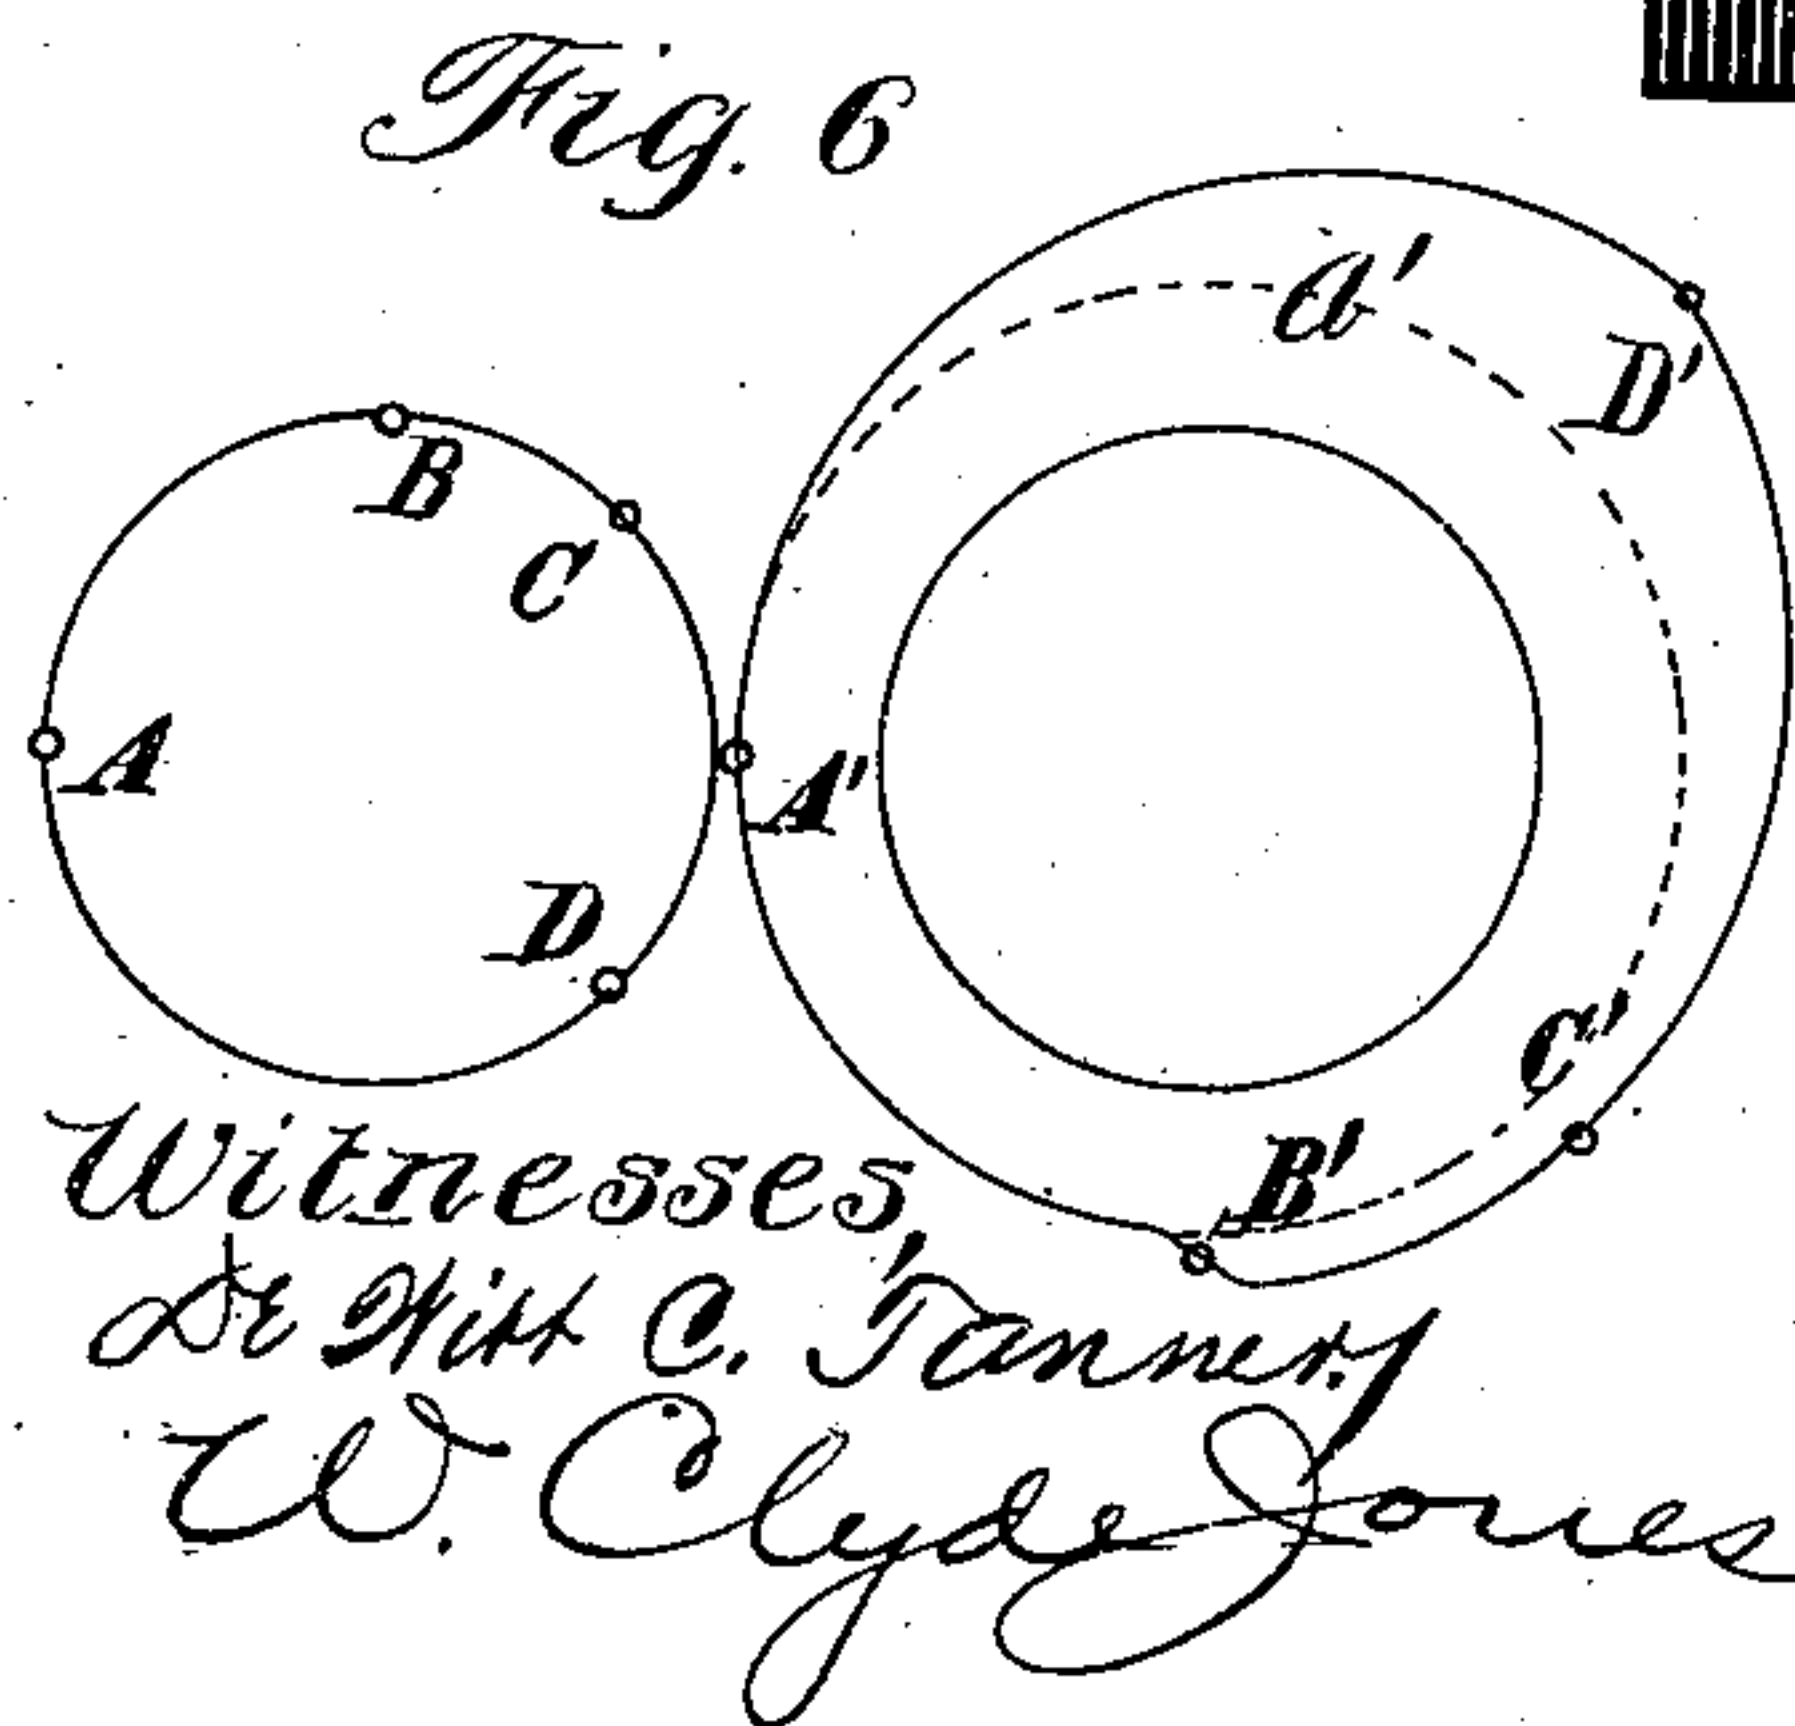 Fig. 6
a'
D'
B
C
A
A'
D
C'
B'
Witnesses,
De Witt C. Tanner.
W. Clyde Jones